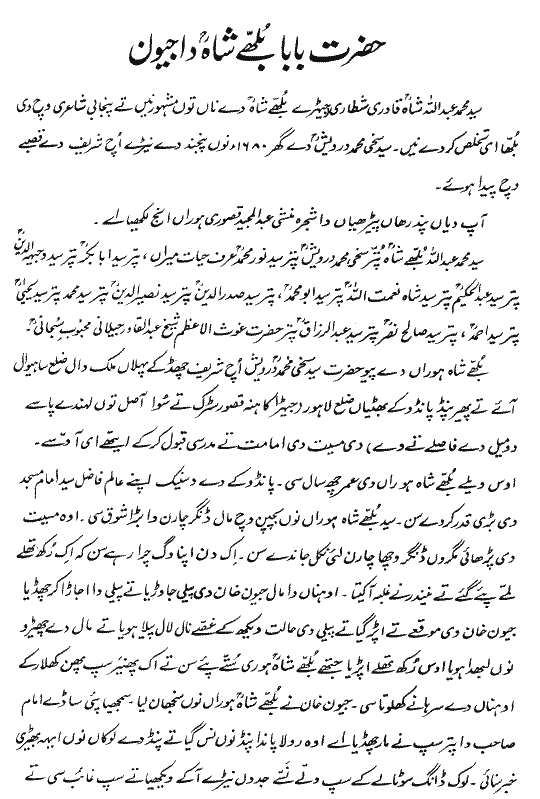 حضرت بابا بُلھّے شاہؒ دا جیون
سید محمد عبداللہ شاہؒ قادری شطاری جیہڑے بلھّے شاہؒ دے ناں توں مشہور نیں تے پنجابی شاعری وچ دی
بُلھّا ای تخلص کر دے نیں۔ سید سخی محمد درویشؒ دے گھر ۱۶۸۰ء نوں پنجند دے نیڑے اُچ شریف دے قصبے
وچ پیدا ہوئے۔
آپ دیاں پندرھاں پیڑھیاں دا شجرہ منشی عبدالمجید قصوری ہوراں انج لکھیا اے۔
سید محمد عبداللہ بُلھّے شاہؒ پُتر سخی محمد درویشؒ پتر سید نور محمدؒ عرف حیات میراں، پتر سید ابابکرؒ پتر سید وجیہہ الدینؒ
پتر سید عبدالحکیمؒ پتر سید شاہ نعمت اللہؒ پتر سید ابو محمدؒ، پتر سید صدرالدینؒ پتر سید نصیرالدینؒ پتر سید محمد پتر سید یحییٰؒ
پتر سید احمدؒ، پتر سید صالح نصرؒ پتر سید عبدالرزاقؒ پتر حضرت غوث الاعظم شیخ عبدالقادر جیلانی محبوب سُبحانیؒ۔
بُلھّے شاہ ہوراں دے پیو حضرت سید سخی محمد درویشؒ اُچ شریف چھڈ کے پہلاں ملک وال ضلع ساہیوال
آئے تے پھیر پنڈ پانڈو کے بھٹیاں ضلع لاہور (جیہڑا کاہنہ قصور سڑک تے سُوا آصل توں لہندے پاسے
دو میل دے فاصلے تے وے) دی مسیت دی امامت تے مدرسی قبول کرکے ایتھے ای آ وسے۔
اوس ویلے بُلھّے شاہ ہوراں دی عمر چھ سال سی۔ پانڈو کے دے وسنیک اپنے عالم فاضل سید امام مسجد
دی بڑی قدر کردے سن۔ سید بُلھّے شاہ ہوراں نوں بچپن وچ مال ڈنگر چارن دا بڑا شوق سی۔ اوہ مسیت
دی پڑھائی مگروں ڈنگر وچھا چارن لئی نکل جاندے سن۔ اِک دن اپنا وگ چرا رہے سن کہ اِک رُکھ تھلے
لمے پئے گئے تے نیندر نے غلبہ آ کیتا۔ اوہناں دا مال جیون خان دی پیلی جا وڑیا تے پیلی دا اجاڑا کر چھڈیا
جیون خان دی موقعے تے اپڑ گیا تے پیلی دی حالت ویکھ کے غصّے نال لال پیلا ہویا تے مال دے چھیڑو
نوں لبھدا ہویا اوس رُکھ تھلے اپڑیا جتھے بُلھّے شاہؒ ہوری سُتے پئے سن تے اک پھنیر سپ پھن کھلار کے
اوہناں دے سرہانے کھلوتا سی۔ جیون خان نے بُلھّے شاہؒ ہوراں نوں سنجھان لیا۔ سمجھیا پئی ساڈے امام
صاحب دا پتر سپ نے مار چھڈیا اے اوہ رولا پاندا پنڈ نوں نس گیا تے پنڈ دے لوکاں نوں ایہہ بھیڑی
خبر سنائی۔ لوک ڈانگ سوٹا لے کے سپ ولے نَسّے جدوں نیڑے آ کے ویکھیا تے سپ غائب سی تے